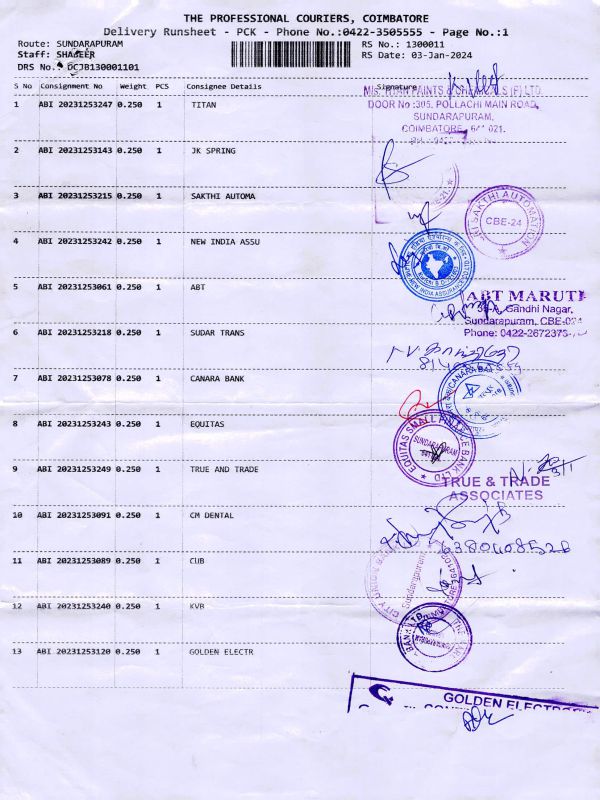 THE PROFESSIONAL COURIERS, COIMBATORE
Delivery Runsheet - PCK - Phone No.:0422-3505555 - Page No.:1
Route: SUNDARAPURAM RS No.: 1300011
Staff: SHAJEER RS Date: 03-Jan-2024
DRS No.: DCJB130001101
S No Consignment No Weight PCS Consignee Details Signature
1 ABI 20231253247 0.250 1 TITAN
PAINTS (P) LTD.
DOOR No :305, POLLACHI MAIN ROAD,
SUNDARAPURAM,
COIMBATORE 021.
2 ABI 20231253143 0.250 1 JK SPRING
3 ABI 20231253215 0.250 1 SAKTHI AUTOMA
SRI SAKTHI AUTOMATION
CBE-24
4 ABI 20231253242 0.250 1 NEW INDIA ASSU
5 ABI 20231253061 0.250 1 ABT
ABT MARUTI
Gandhi Nagar,
Sundarapuram, CBE-
Phone: 0422-2672373
6 ABI 20231253218 0.250 1 SUDAR TRANS
7 ABI 20231253078 0.250 1 CANARA BANK
CANARA BANK
8 ABI 20231253243 0.250 1 EQUITAS
EQUITAS SMALL FINANCE BANK LTD
SUNDARAPURAM
9 ABI 20231253249 0.250 1 TRUE AND TRADE
3/1
TRUE & TRADE
ASSOCIATES
10 ABI 20231253091 0.250 1 CM DENTAL
6380408526
11 ABI 20231253089 0.250 1 CUB
CITY UNION BANK
Sundarapuram
12 ABI 20231253240 0.250 1 KVB
13 ABI 20231253120 0.250 1 GOLDEN ELECTR
GOLDEN